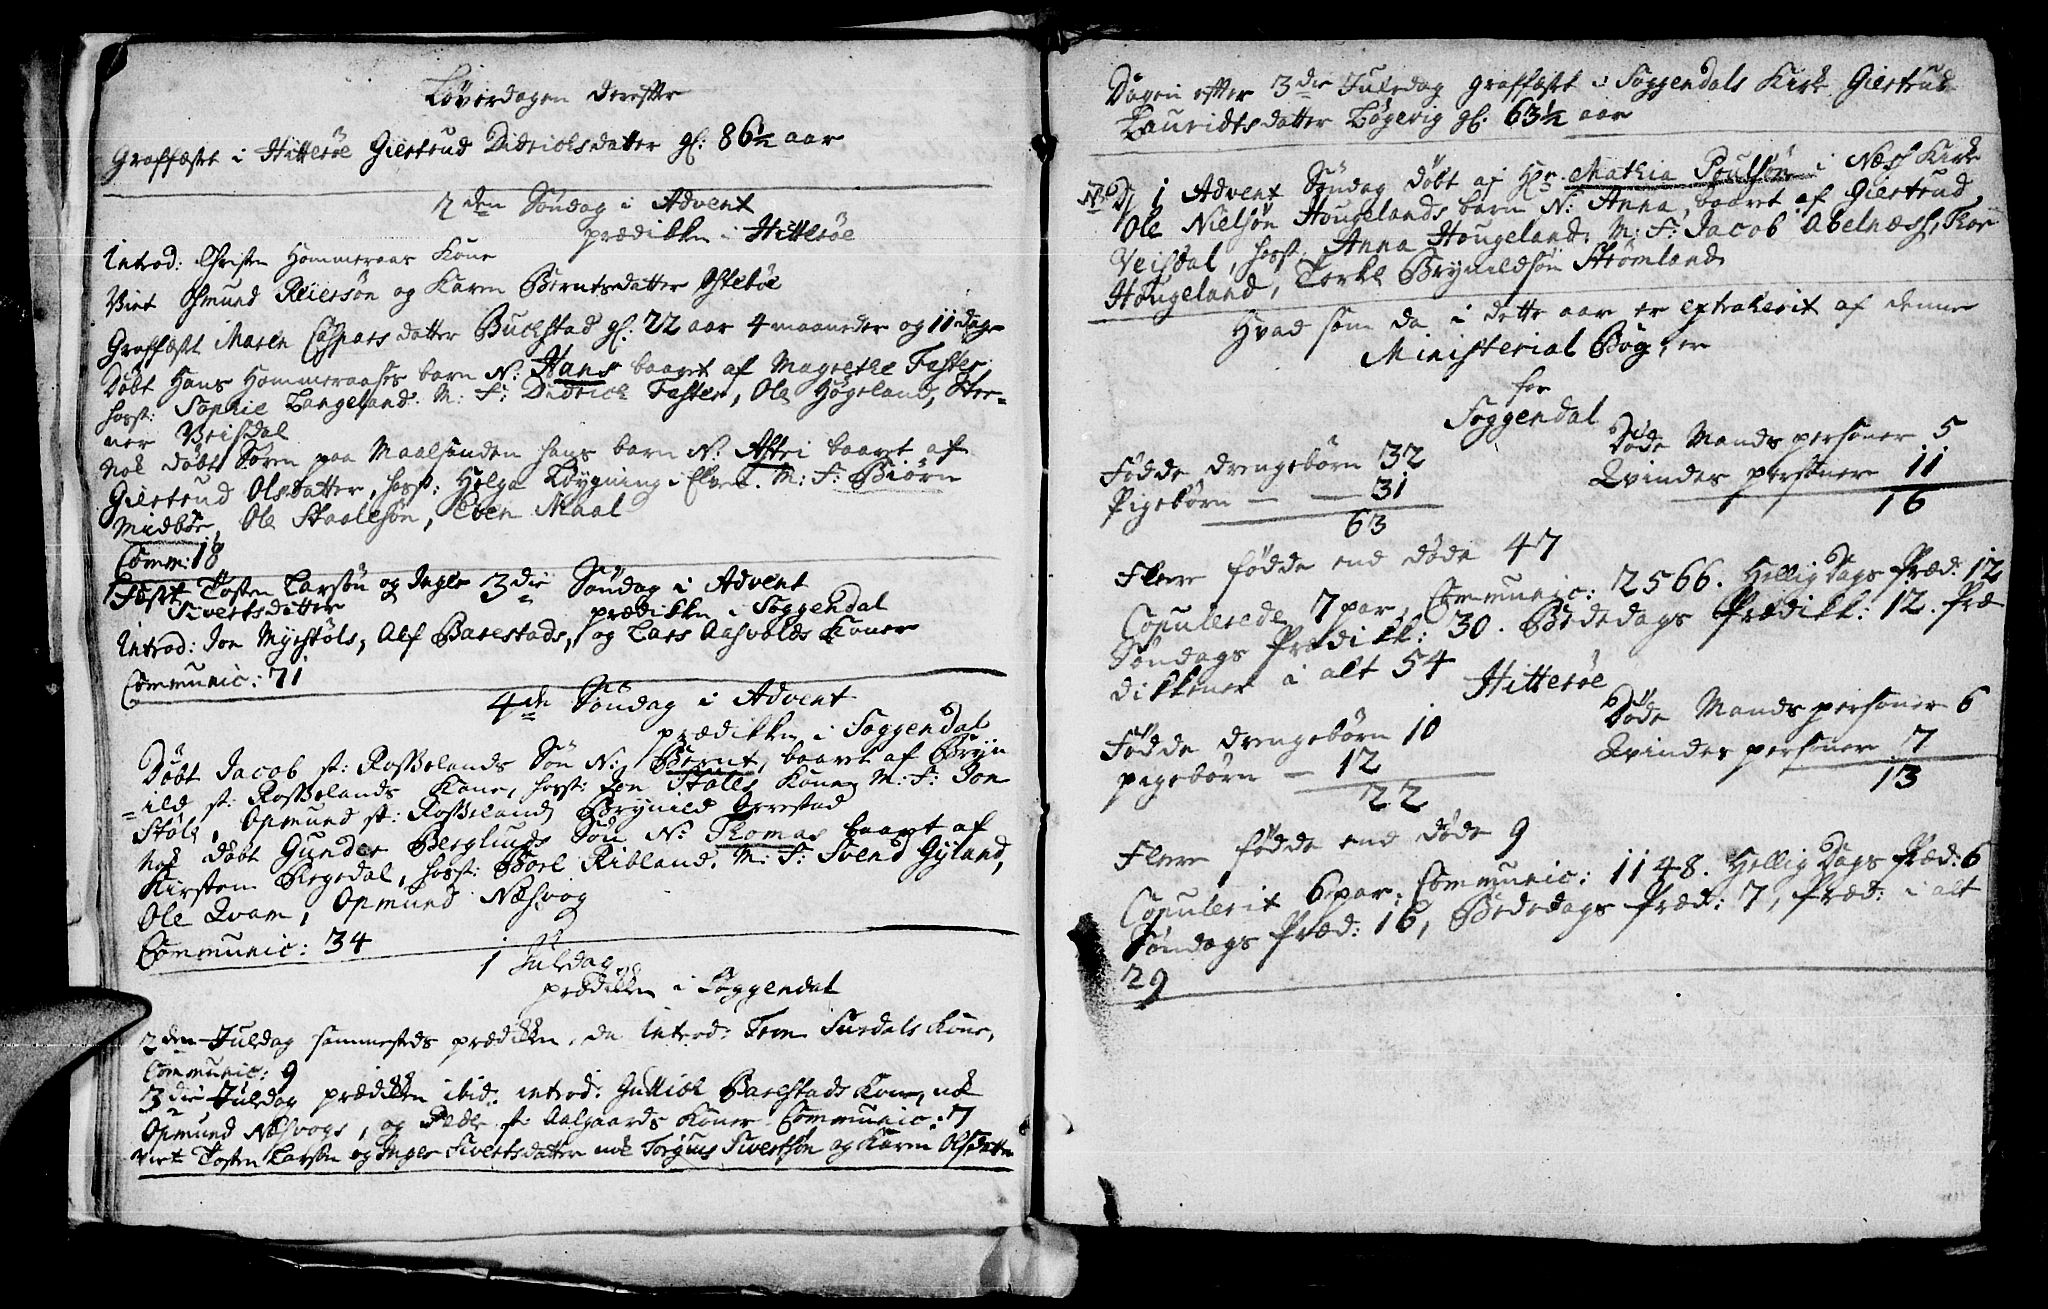 Løverdagen derefter
Graffæstet i Hitterøe Giertrud Didrichsdatter gl: 86½ aar
2den Søndag i Advent
prædikken i Hitterøe
Introd: Christen Hommeraas Kone
Viet Osmund Reiersøn og Karen Berntsdatter Ostebøe
Graffæst Maren Caspars datter Buchstad gl: 22 aar 4 maaneder og 11 dage
Døbt Hans Hommeraases barn N: Hans baaret af Magrethe Faster
hosst: Sophie Langeland. M: F: Didrich Faster, Ole Høgeland, Ster=
ner Veisdal
Nok døbt Søren paa Maalsunden hans barn N: Astri baaret af
Giertrud Olsdatter, hosst: Helga Løygning i M: F: Biørn
Midbøe, Ole Staalesøn, Even Maal
Comm: 18
Fæst Tosten Larsøn og Inger 3die Søndag i Advent
Sivertsdatter prædikken i Soggendal
Introd: Jon Myrstøls, Alf Barestads, og Lars Aasvolds Koner
Communic: 71
4de Søndag i Advent
prædikken i Soggendal
Døbt Jacob st: Rosselands Søn N: Bernt, baaret af Bryn
=ild st: Rosselands Kone, hosst: Jon Støles Kone, M: F: Jon
Støle, Opmund st: Rosseland, Brynild Orrestad
Nok døbt Gunder Berglunds Søn N: Thomas baaret af
Kirsten Regedal, hosst: Boel Ribland. M: F: Svend Gyland,
Ole Qvam, Opmund Næsvog
Communic: 34
1 Juledag
prædikken i Soggendal
2den Juledag sammesteds prædikken, da Introd: Tron Surdals Kone,
Communic: 9
3die Juledag prædikken ibid: introd: Guttich Barestads Kone, nok
Opmund Næsvogs, og Peder st: Aalgaards Koner Communic: 7
Viet Tosten Larsøn og Inger Sivertsdatter nok Torgius Sivertsøn og Karen Olsdatter
Dagen efter 3die Juledag Graffæstet i Soggendals Kirke Giertrud
Lauridtsdatter Løgevig gl: 63½ aar
NB D 1 Advent Søndag døbt af Hr: Mathia Poulsøn i Næss Kirke
Ole Nielsøn Hougelands barn N: Anna, baaret af Giertrud
Veisdal, hosst: Anna Hougeland. M: F: Jacob Abelnæss, Tor
Hougeland, Terkel Brynildsøn Strømland
Hvad som da i dette aar er extraherit af denne
Ministerial Bog, er
for
Soggendal
Fødde drengebørn 32
Pigebørn — — 31
63
Døde Mands personer 5
Qvindes personer 11
16
Flere fødde end døde 47
Copulerede 7 par, Communic: 2566. Hellig Dags Præd: 12
Søndags Prædikk: 30. Bededags Prædikk: 12. Præ
dikkener i alt 54
Hitterøe
Fødde drengebørn 10
pigebørn — 12
22
Døde Mands personer 6
Qvindes personer 7
13
Flere fødde end døde 9
Copulerit 6 par: Communic: 1148. Hellig Dags Præd: 6
Søndags Præd: 16, Bededags Præd: 7, Præd: i alt
29